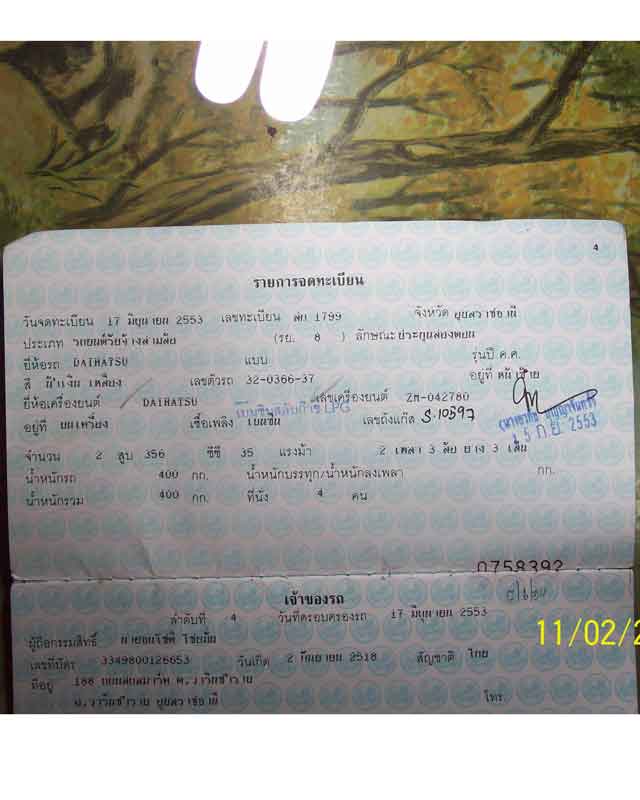 4
รายการจดทะเบียน
วันจดทะเบียน 17 มิถุนายน 2553 เลขทะเบียน 1799 จังหวัด อุบลราชธานี
ประเภท รถยนต์รับจ้างสามล้อ (รย. 8 ) ลักษณะ ประทุนสองตอน
ยี่ห้อรถ DAIHATSU แบบ รุ่นปี ค.ศ.
สี น้ำเงิน เหลือง เลขตัวรถ 32-0366-37 อยู่ที่
ยี่ห้อเครื่องยนต์ DAIHATSU เลขเครื่องยนต์ ZM-042780
เบนซินสลับก๊าซ LPG
อยู่ที่ เชื้อเพลิง เบนซิน เลขถังแก๊ส S.10397
5 ก.ย. 2553
จำนวน 2 สูบ 356 ซีซี 35 แรงม้า 2 เพลา 3 ล้อ ยาง 3 เส้น
น้ำหนักรถ 400 กก. น้ำหนักบรรทุก/น้ำหนักลงเพลา กก.
น้ำหนักรวม 400 กก. ที่นั่ง 4 คน
0758392
เจ้าของรถ
ลำดับที่ 4 วันที่ครอบครองรถ 17 มิถุนายน 2553
11/02/2
ผู้ถือกรรมสิทธิ์
เลขที่บัตร 3349800126653 วันเกิด 2 กันยายน 2518 สัญชาติ ไทย
ที่อยู่ 188 ถนน ต.วารินชำราบ
อ.วารินชำราบ อุบลราชธานี โทร.